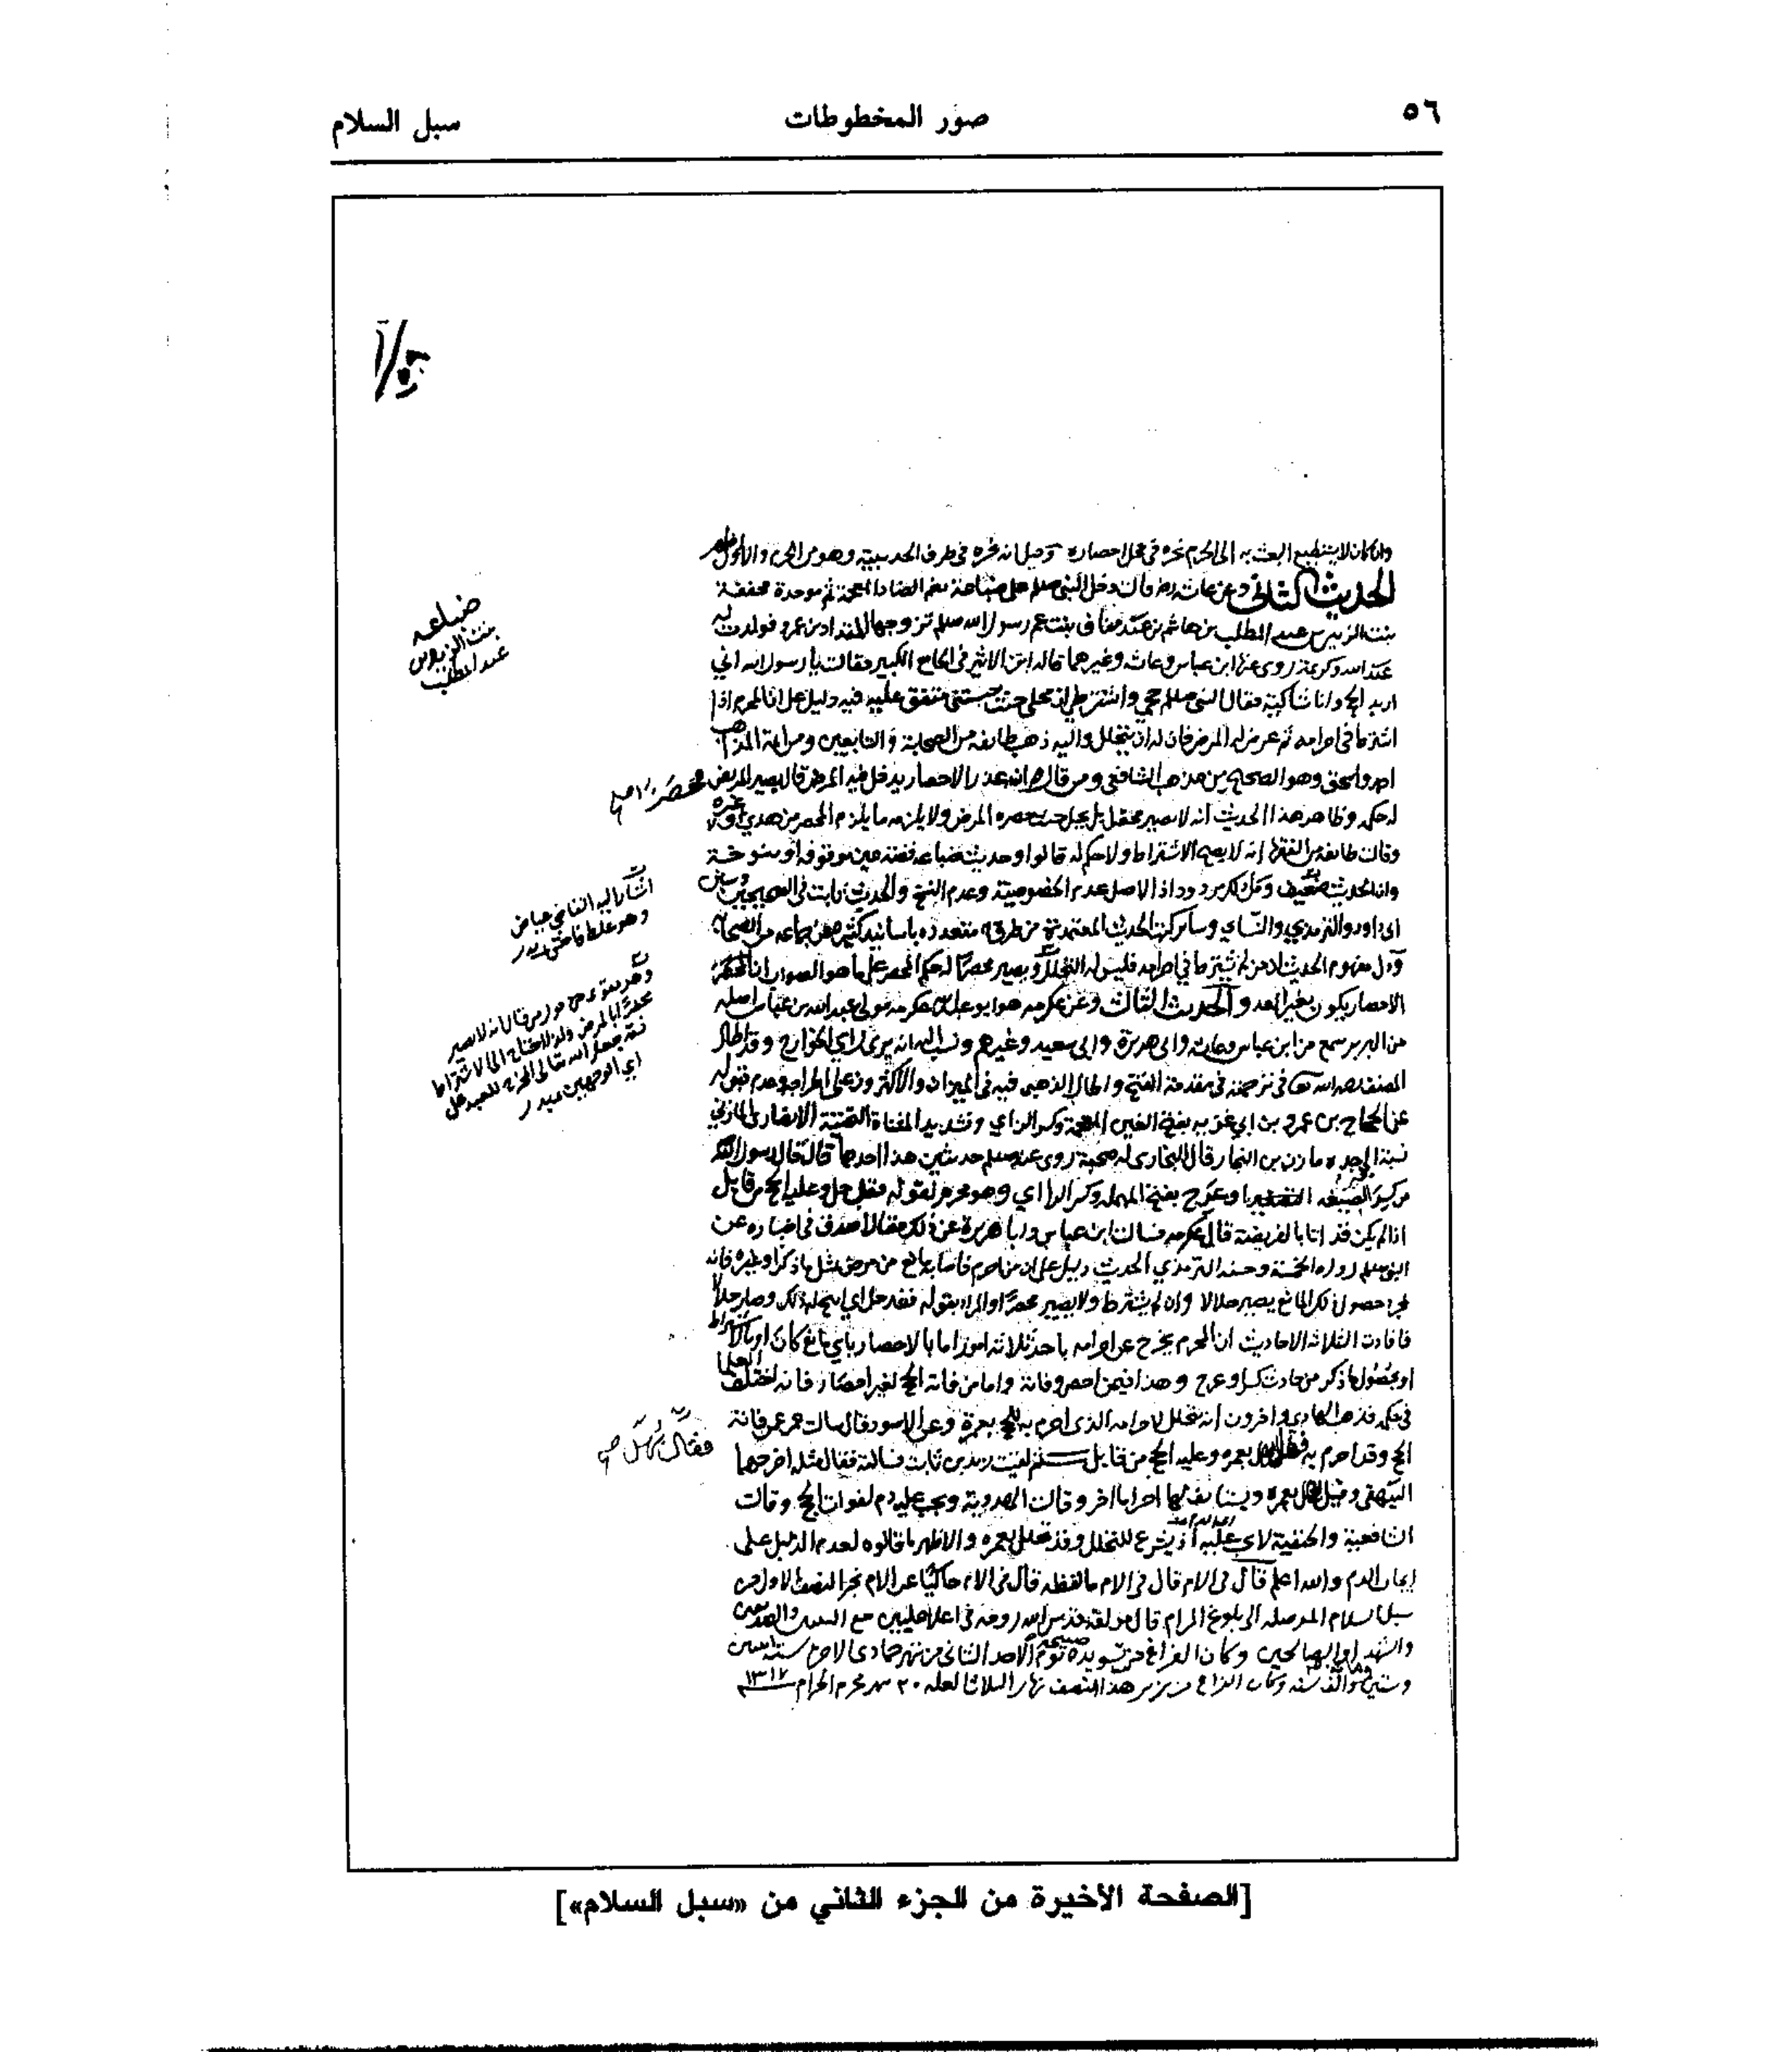 ٥٦ صور المخطوطات سبل السلام
وان كان لا يستطيع البعث به الى الحرم نحره في محل احصاره وقيل انه نحره في طرف الحديبية وهو من الحرم والاول اظهر
الحديث الثاني وعن عائشة رضي قالت دخل النبي صلعم على ضباعة بضم الضاد المعجمة ثم موحدة مخففة
بنت الزبير بن عبد المطلب بن هاشم بن عبد مناف بنت عم رسول الله صلعم تزوجها المقداد بن عمرو فولدت له
عبد الله وكريمة روى عنها ابن عباس وعائشة وغيرهما قاله ابن الاثير في الجامع الكبير فقالت يا رسول الله اني
اريد الحج وانا شاكية فقال النبي صلعم حجي واشترطي ان محلي حيث حبستني متفق عليه فيه دليل على ان المحرم اذا
اشترط في احرامه ثم عرض له المرض فان له ان يتحلل واليه ذهب طائفة من الصحابة والتابعين ومن ائمة المذاهب
احمد واسحق وهو الصحيح من مذهب الشافعي ومن قال ان عذر الاحصار يدخل فيه المرض قال يصير المريض محصرا
له حكمه وظاهر هذا الحديث انه لا يصير محصرا بل يحل حيث حصره المرض ولا يلزمه ما يلزم المحصر من هدي او غيره
وقالت طائفة من الفقهاء انه لا يصح الاشتراط ولا حكم له قالوا وحديث ضباعة قصة عين موقوفة او منسوخة
وان الحديث ضعيف وكل ذلك مردود اذ الاصل عدم الخصوصية وعدم النسخ والحديث ثابت في الصحيحين وسنن
ابي داود والترمذي والنسائي وسائر كتب الحديث المعتمدة من طرق متعددة باسانيد كثيرة عن جماعة من الصحابة
ودل مفهوم الحديث ان من لم يشترط في احرامه فليس له التحلل ويصير محصرا له حكم المحصر على ما هو الصواب
الاحصار يكون بغير العدو الحديث الثالث وعن عكرمة هو ابو عبد الله عكرمة مولى عبد الله بن عباس اصله
من البربر سمع من ابن عباس وعائشة وابي هريرة وابي سعيد وغيرهم ونسب اليه انه يرى راي الخوارج وقد اطال
المصنف رحمه الله تعا في ترجمته في مقدمة الفتح واطال الذهبي فيه في الميزان والاكثرون على اطراحه وعدم قبوله
عن الحجاج بن عمرو بن ابي غزيه بفتح الغين المعجمة وكسر الزاي وتشديد المثناة التحتية الانصاري المازني
نسبة الى جده مازن بن النجار قال البخاري له صحبة روى عنه صلعم حديثين هذا احدهما قال قال رسول الله
من كسر او عرج بفتح المهملة وكسر الراء وهو محرم لقوله فقد حل وعليه الحج من قابل
اذا لم يكن قد اتا بالفريضة قال عكرمه فسالت ابن عباس وابا هريرة عن ذلك فقالا صدق في اخباره عن
النبي صلعم رواه الخمسة وحسنه الترمذي الحديث دليل على ان من احرم فاصابه مانع من مرض مثل ما ذكر او غيره فانه
بمجرد حصول ذلك المانع يصير حلالا وان لم يشترط ولا يصير محصرا والمراد بقوله فقد حل اي ابيح له ذلك وصار حلالا
فافادت الثلاثة الاحاديث ان المحرم يخرج عن احرامه باحد ثلاثة امور اما بالاحصار باي مانع كان او بالاشتراط
او بحصول ما ذكر من حادث كسر او عرج وهذا فيمن احصر وفاته واما من فاته الحج لغير احصار فانه اختلف العلما
في حكمه فذهب الهادي واخرون انه يتحلل باحرامه الذي احرم به للحج بعمرة وعن الاسود قال سالت عمر عمن فاته
الحج وقد احرم به فقال يهل بعمره وعليه الحج من قابل ثم لقيت زيد بن ثابت فسالته فقال مثله اخرجهما
البيهقي وقيل يهل بعمره ويستانف لها احراما اخر وقالت الهدوية ويجب عليه دم لفوات الحج وقالت
الشافعية والحنفية لا يجب عليه اذ يشرع للتحلل وقد تحلل بعمره والاظهر ما قالوه لعدم الدليل على
ايجاب الدم والله اعلم قال في الام قال في الام ما لفظه قال في الام حاكيا عن الام نجز النصف الاول من
سبل السلام الموصله الى بلوغ المرام قال مولفه قدس الله روحه في اعلا عليين مع النبيين والصديقين
والشهداء والصالحين وكان الفراغ من تسويده صبيحة يوم الاحد الثاني من شهر جمادى الاخرة سنة
وستين ومائة والف سنه وكان الفراغ من زبر هذا النصف نهار الثلاثا لعله ٢٠ شهر محرم الحرام ١٣١٧
ضباعه
بنت الزبير بن
عبد المطلب
محصرا صح
اشار اليه القاضي عياض
وهو غلط فاحش
فقال يهل صح
[الصفحة الأخيرة من الجزء الثاني من «سبل السلام»]